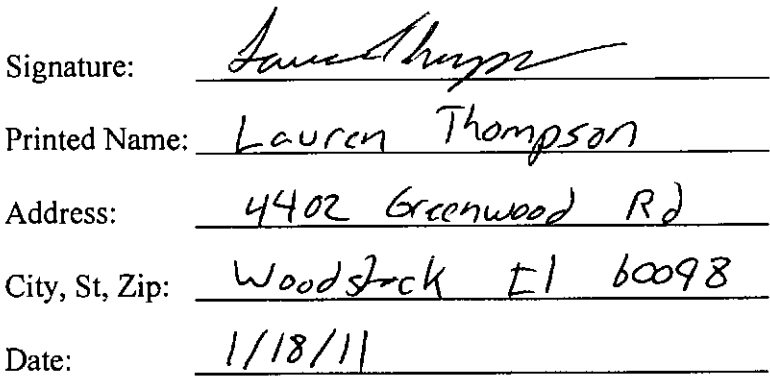 Signature: Lauren Thompson
Printed Name: Lauren Thompson
Address: 4402 Greenwood Rd
City, St, Zip: Woodstock Il 60098
Date: 1/18/11